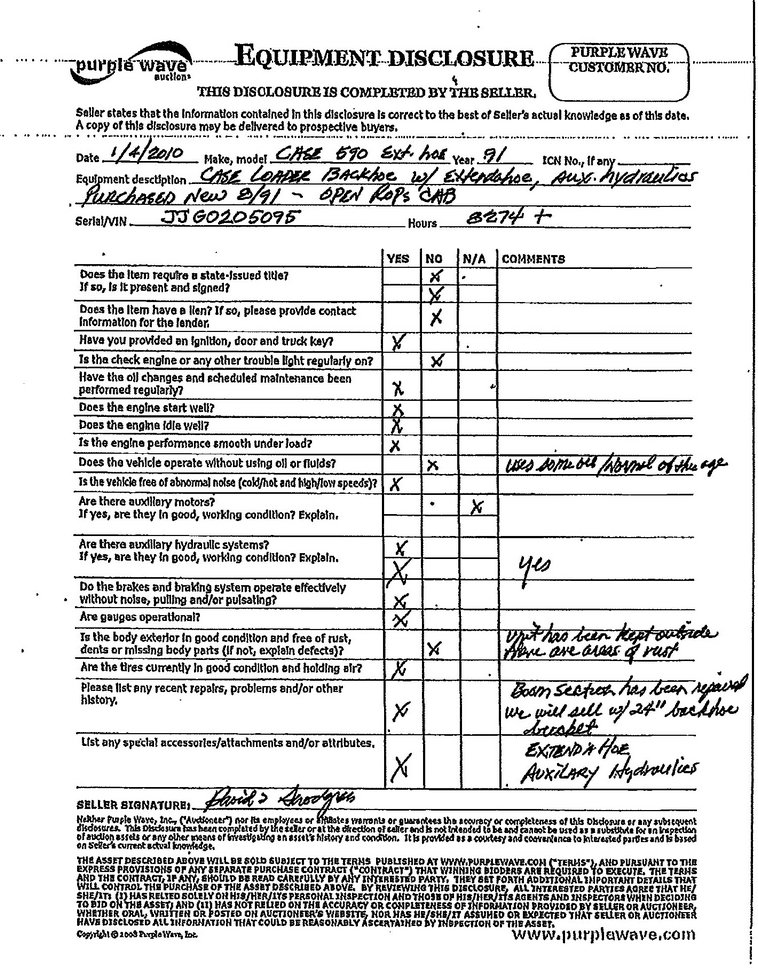 purple wave
auctions
EQUIPMENT DISCLOSURE
PURPLE WAVE
CUSTOMER NO.
THIS DISCLOSURE IS COMPLETED BY THE SELLER.
Seller states that the information contained in this disclosure is correct to the best of Seller's actual knowledge as of this date.
A copy of this disclosure may be delivered to prospective buyers.
Date 1/4/2010 Make, model CASE 590 Ext. hoe Year 91 ICN No., if any
Equipment description CASE LOADER BACKHOE w/ Extendahoe, Aux. hydraulics
PURCHASED NEW 8/91 - OPEN ROPS CAB
Serial/VIN JJG0205095 Hours 8274 +
YES NO N/A COMMENTS
Does the item require a state-issued title? X
If so, is it present and signed? X
Does the item have a lien? If so, please provide contact
information for the lender. X
Have you provided an ignition, door and truck key? X
Is the check engine or any other trouble light regularly on? X
Have the oil changes and scheduled maintenance been
performed regularly? X
Does the engine start well? X
Does the engine idle well? X
Is the engine performance smooth under load? X
Does the vehicle operate without using oil or fluids? X uses some oil/normal of the age
Is the vehicle free of abnormal noise (cold/hot and high/low speeds)? X
Are there auxiliary motors? X
If yes, are they in good, working condition? Explain.
Are there auxiliary hydraulic systems? X
If yes, are they in good, working condition? Explain. X yes
Do the brakes and braking system operate effectively
without noise, pulling and/or pulsating? X
Are gauges operational? X
Is the body exterior in good condition and free of rust, Unit has been kept outside
dents or missing body parts (if not, explain defects)? X there are areas of rust
Are the tires currently in good condition and holding air? X
Please list any recent repairs, problems and/or other Boom section has been repaired
history. X we will sell w/ 24" backhoe
bucket
List any special accessories/attachments and/or attributes. EXTENDAHOE
X AUXILARY Hydraulics
SELLER SIGNATURE: David
Neither Purple Wave, Inc., ("Auctioneer") nor its employees or affiliates warrants or guarantees the accuracy or completeness of this Disclosure or any subsequent
disclosures. This Disclosure has been completed by the seller or at the direction of seller and is not intended to be and cannot be used as a substitute for an inspection
of auction assets or any other means of investigating an asset's history and condition. It is provided as a courtesy and convenience to interested parties and is based
on Seller's current actual knowledge.
THE ASSET DESCRIBED ABOVE WILL BE SOLD SUBJECT TO THE TERMS PUBLISHED AT WWW.PURPLEWAVE.COM ("TERMS"), AND PURSUANT TO THE
EXPRESS PROVISIONS OF ANY SEPARATE PURCHASE CONTRACT ("CONTRACT") THAT WINNING BIDDERS ARE REQUIRED TO EXECUTE. THE TERMS
AND THE CONTRACT, IF ANY, SHOULD BE READ CAREFULLY BY ANY INTERESTED PARTY. THEY SET FORTH ADDITIONAL IMPORTANT DETAILS THAT
WILL CONTROL THE PURCHASE OF THE ASSET DESCRIBED ABOVE. BY REVIEWING THIS DISCLOSURE, ALL INTERESTED PARTIES AGREE THAT HE/
SHE/IT: (I) HAS RELIED SOLELY ON HIS/HER/ITS PERSONAL INSPECTION AND THOSE OF HIS/HER/ITS AGENTS AND INSPECTORS WHEN DECIDING
TO BID ON THE ASSET; AND (II) HAS NOT RELIED ON THE ACCURACY OR COMPLETENESS OF INFORMATION PROVIDED BY SELLER OR AUCTIONEER,
WHETHER ORAL, WRITTEN OR POSTED ON AUCTIONEER'S WEBSITE, NOR HAS HE/SHE/IT ASSUMED OR EXPECTED THAT SELLER OR AUCTIONEER
HAVE DISCLOSED ALL INFORMATION THAT COULD BE REASONABLY ASCERTAINED BY INSPECTION OF THE ASSET.
Copyright © 2008 Purple Wave, Inc. www.purplewave.com